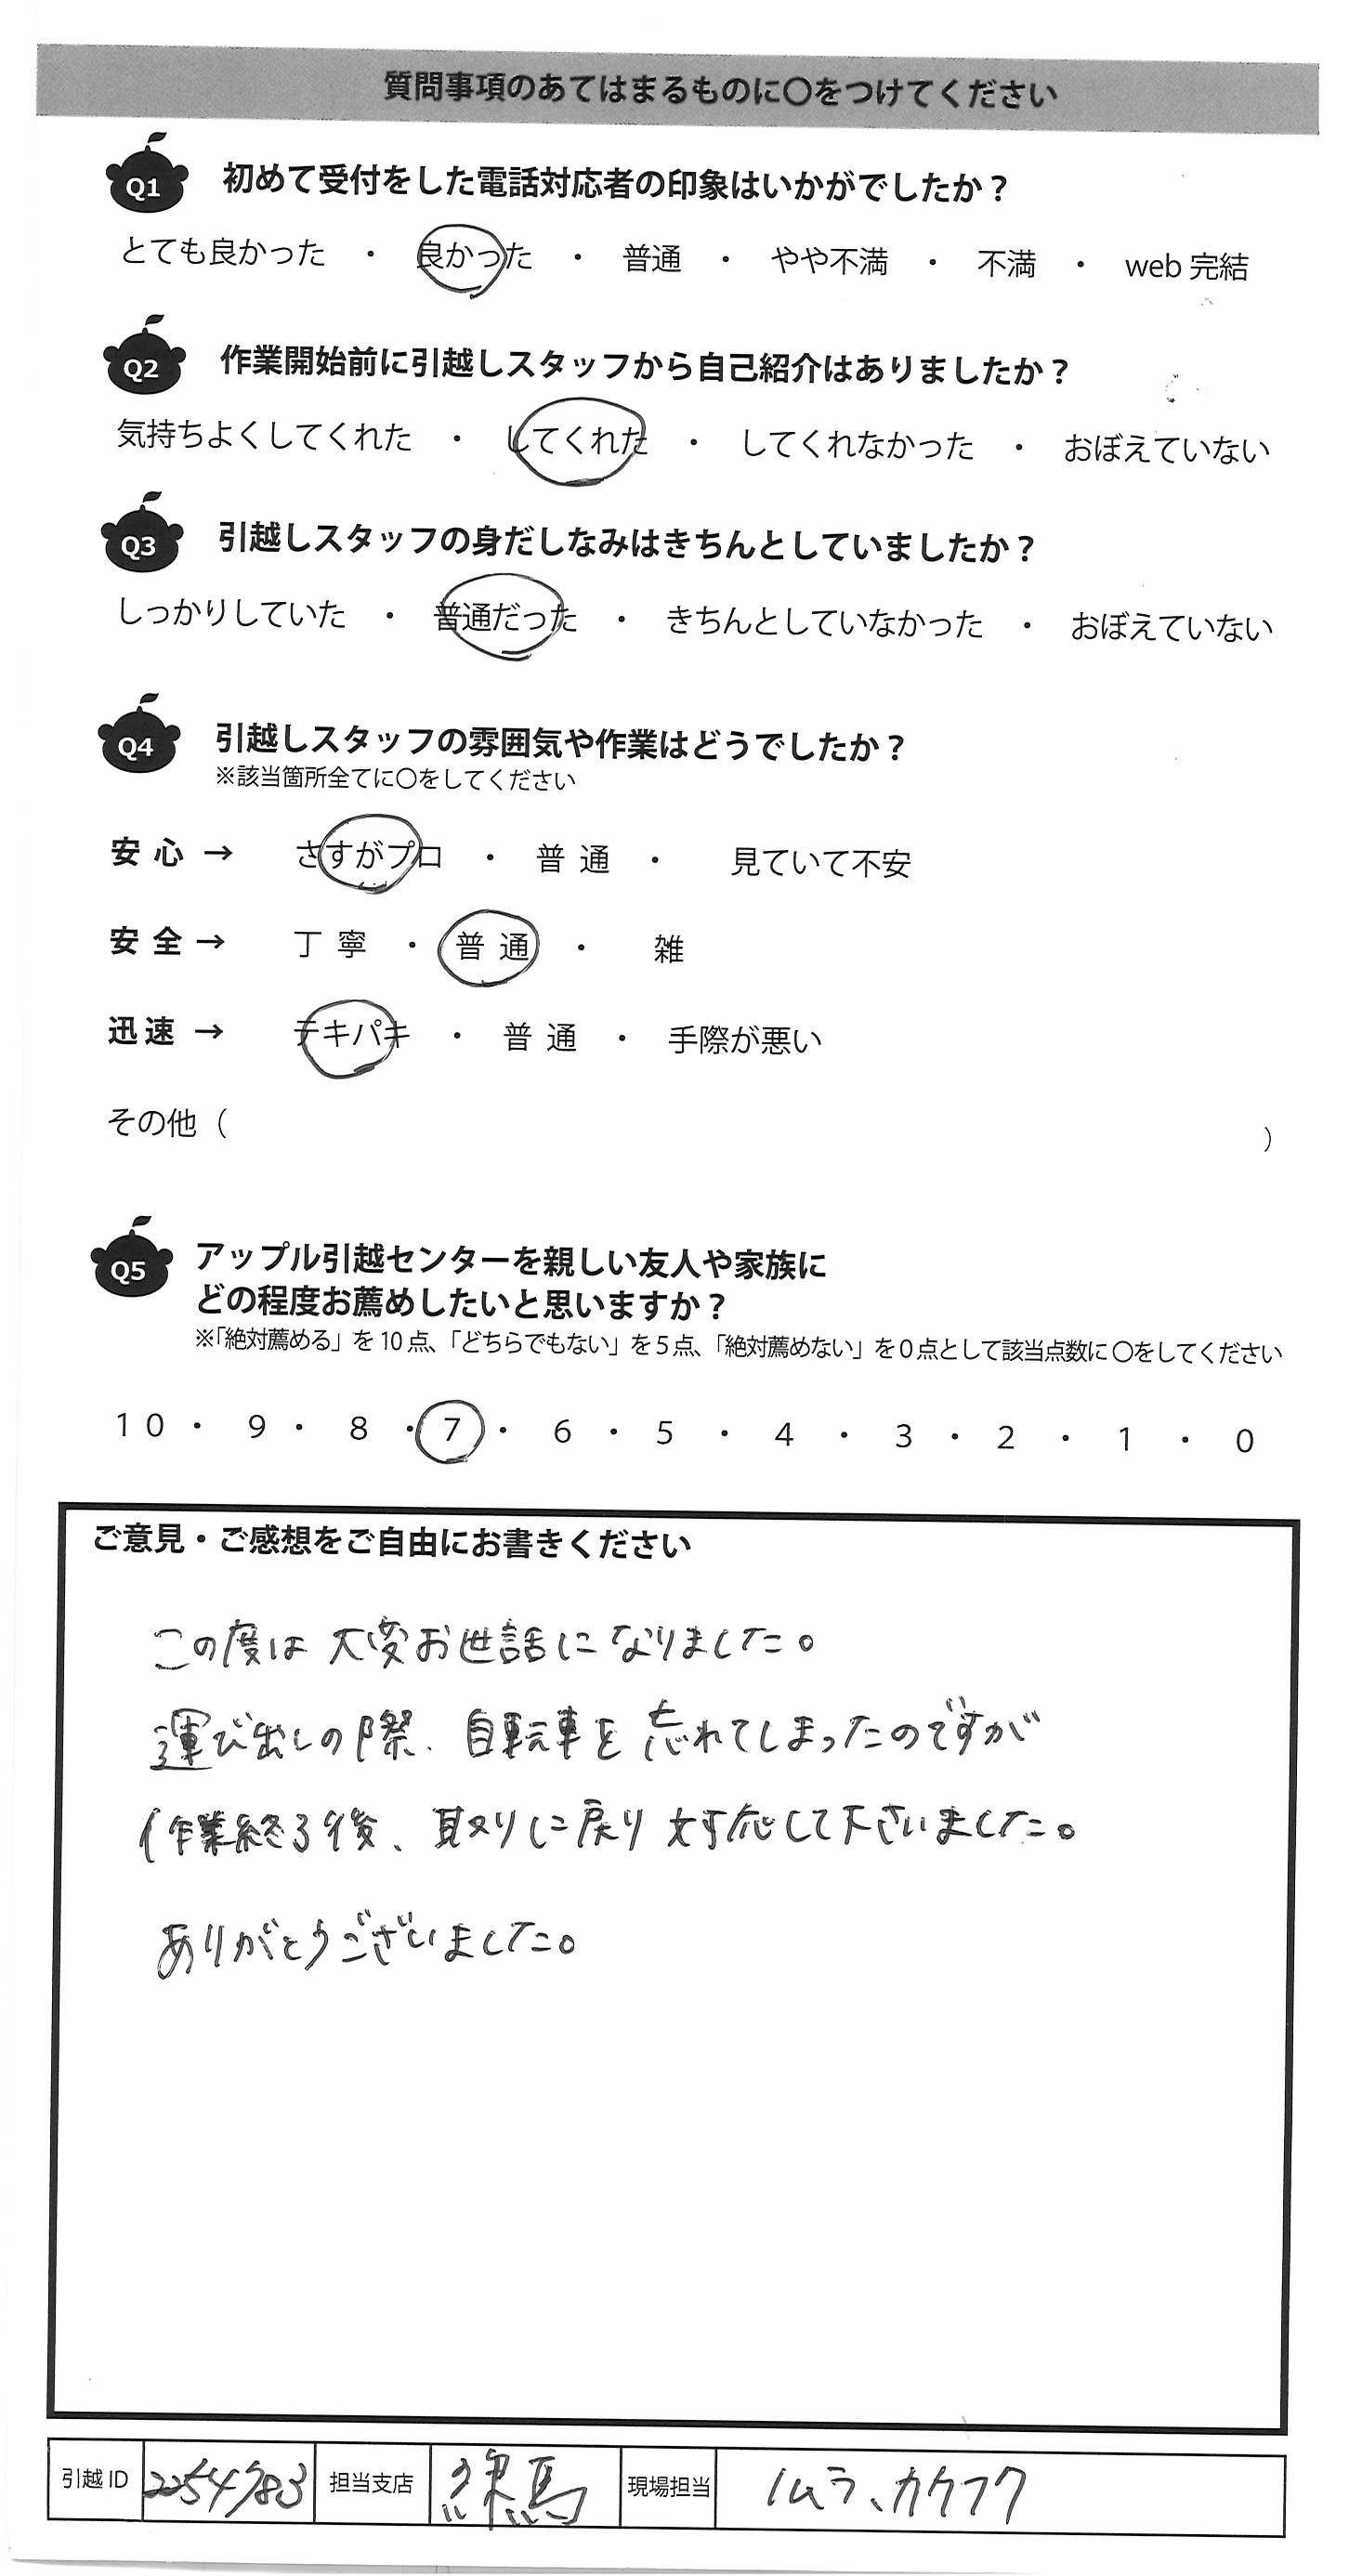 質問事項のあてはまるものに〇をつけてください
Q1 初めて受付をした電話対応者の印象はいかがでしたか？
とても良かった ・ 良かった ・ 普通 ・ やや不満 ・ 不満 ・ web 完結
Q2 作業開始前に引越しスタッフから自己紹介はありましたか？
気持ちよくしてくれた ・ してくれた ・ してくれなかった ・ おぼえていない
Q3 引越しスタッフの身だしなみはきちんとしていましたか？
しっかりしていた ・ 普通だった ・ きちんとしていなかった ・ おぼえていない
Q4 引越しスタッフの雰囲気や作業はどうでしたか？
※該当箇所全てに〇をしてください
安心 → さすがプロ ・ 普通 ・ 見ていて不安
安全 → 丁寧 ・ 普通 ・ 雑
迅速 → テキパキ ・ 普通 ・ 手際が悪い
その他（ ）
Q5 アップル引越センターを親しい友人や家族に
どの程度お薦めしたいと思いますか？
※「絶対薦める」を10点、「どちらでもない」を5点、「絶対薦めない」を0点として該当点数に〇をしてください
10 ・ 9 ・ 8 ・ 7 ・ 6 ・ 5 ・ 4 ・ 3 ・ 2 ・ 1 ・ 0
ご意見・ご感想をご自由にお書きください
この度は大変お世話になりました。
運び出しの際、自転車を忘れてしまったのですが
作業終了後、取りに戻り対応して下さいました。
ありがとうございました。
引越ID 2254783 担当支店 練馬 現場担当 ノムラ、カケフク